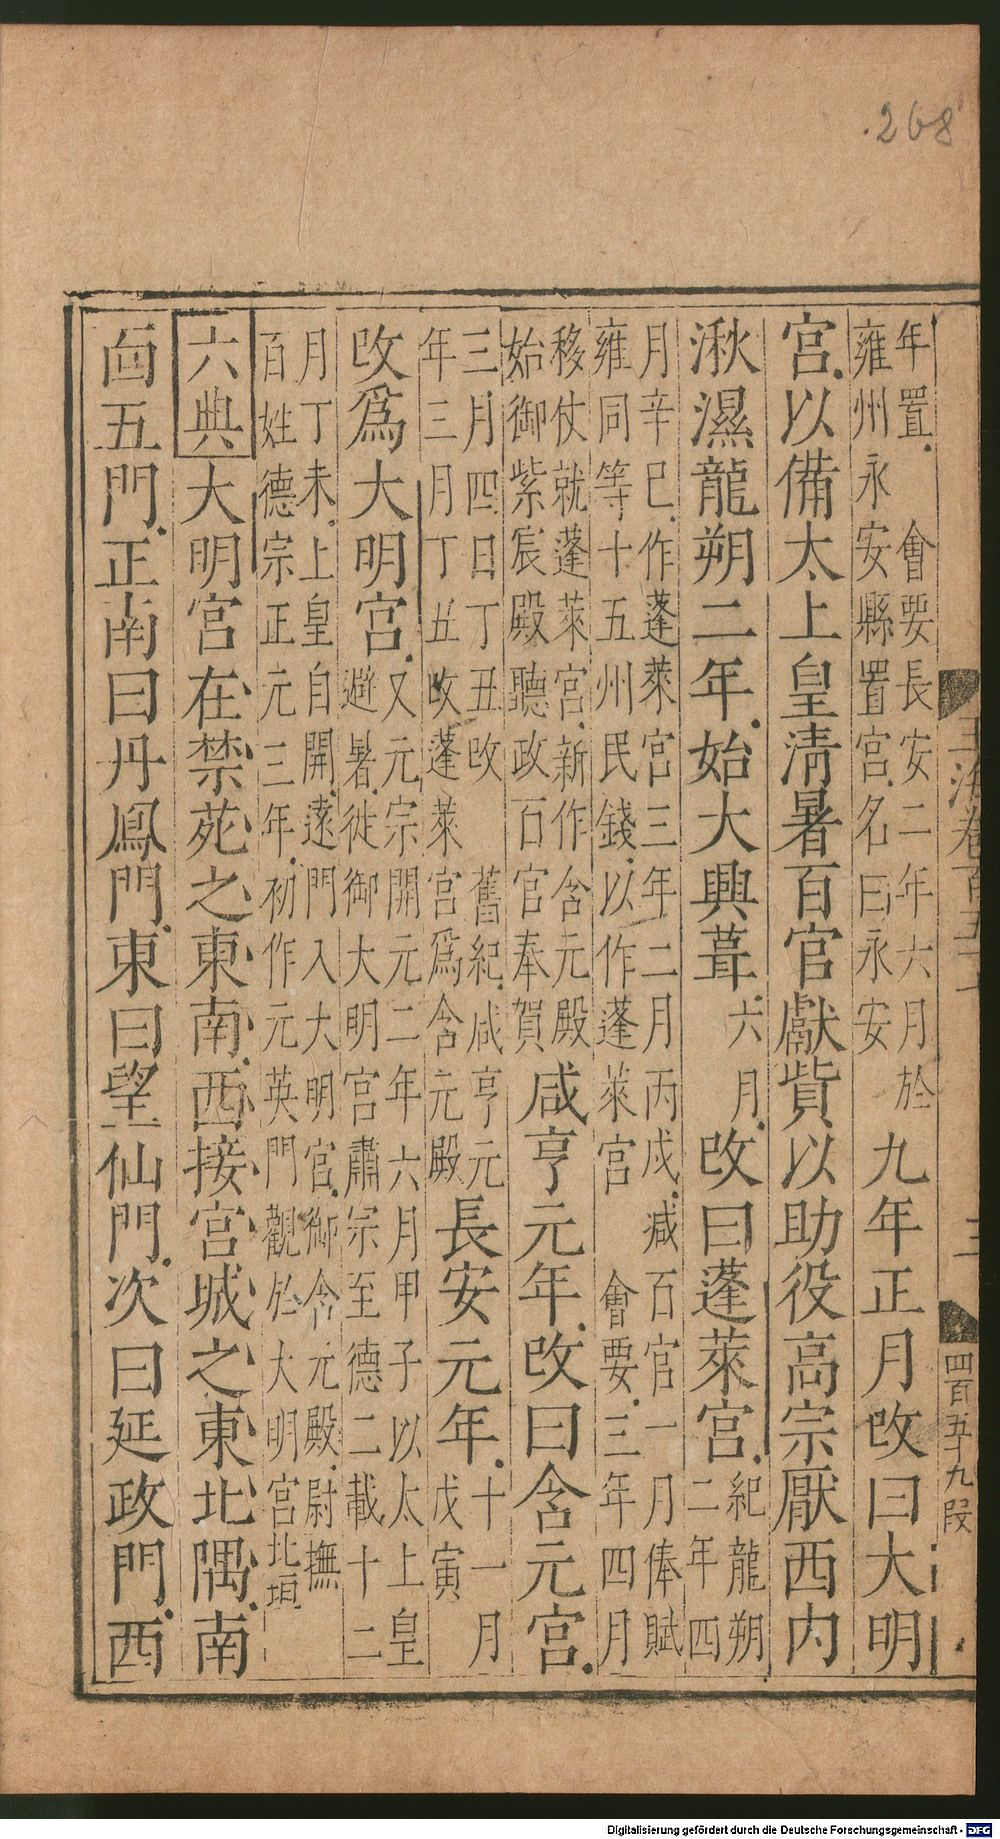 268
年置會要長安二年六月於
雍州永安縣置宮名曰永安
九年正月改曰大明
宮以備太上皇清暑百官獻貲以助役高宗厭西内
湫濕龍朔二年始大興葺
六月
改曰蓬萊宮
紀龍朔
二年四
月辛巳作蓬萊宮三年二月丙戌減百官一月俸賦
雍同等十五州民錢以作蓬萊宮會要三年四月
移仗就蓬萊宮新作含元殿
始御紫宸殿聽政百官奉賀
咸亨元年改曰含元宮
長安元年
十一月
戊寅
三月四日丁丑改舊紀咸亨元
年三月丁丑改蓬萊宮爲含元殿
改爲大明宮
又元宗開元二年六月甲子以太上皇
避暑徙御大明宮肅宗至德二載十二
月丁未上皇自開遠門入大明宮御含元殿尉撫
百姓德宗正元三年初作元英門觀於大明宮北垣
六典大明宮在禁苑之東南西接宮城之東北隅南
面五門正南曰丹鳳門東曰望仙門次曰延政門西
玉海卷百五十七
三
四百五十九段
Digitalisierung gefördert durch die Deutsche Forschungsgemeinschaft - DFG